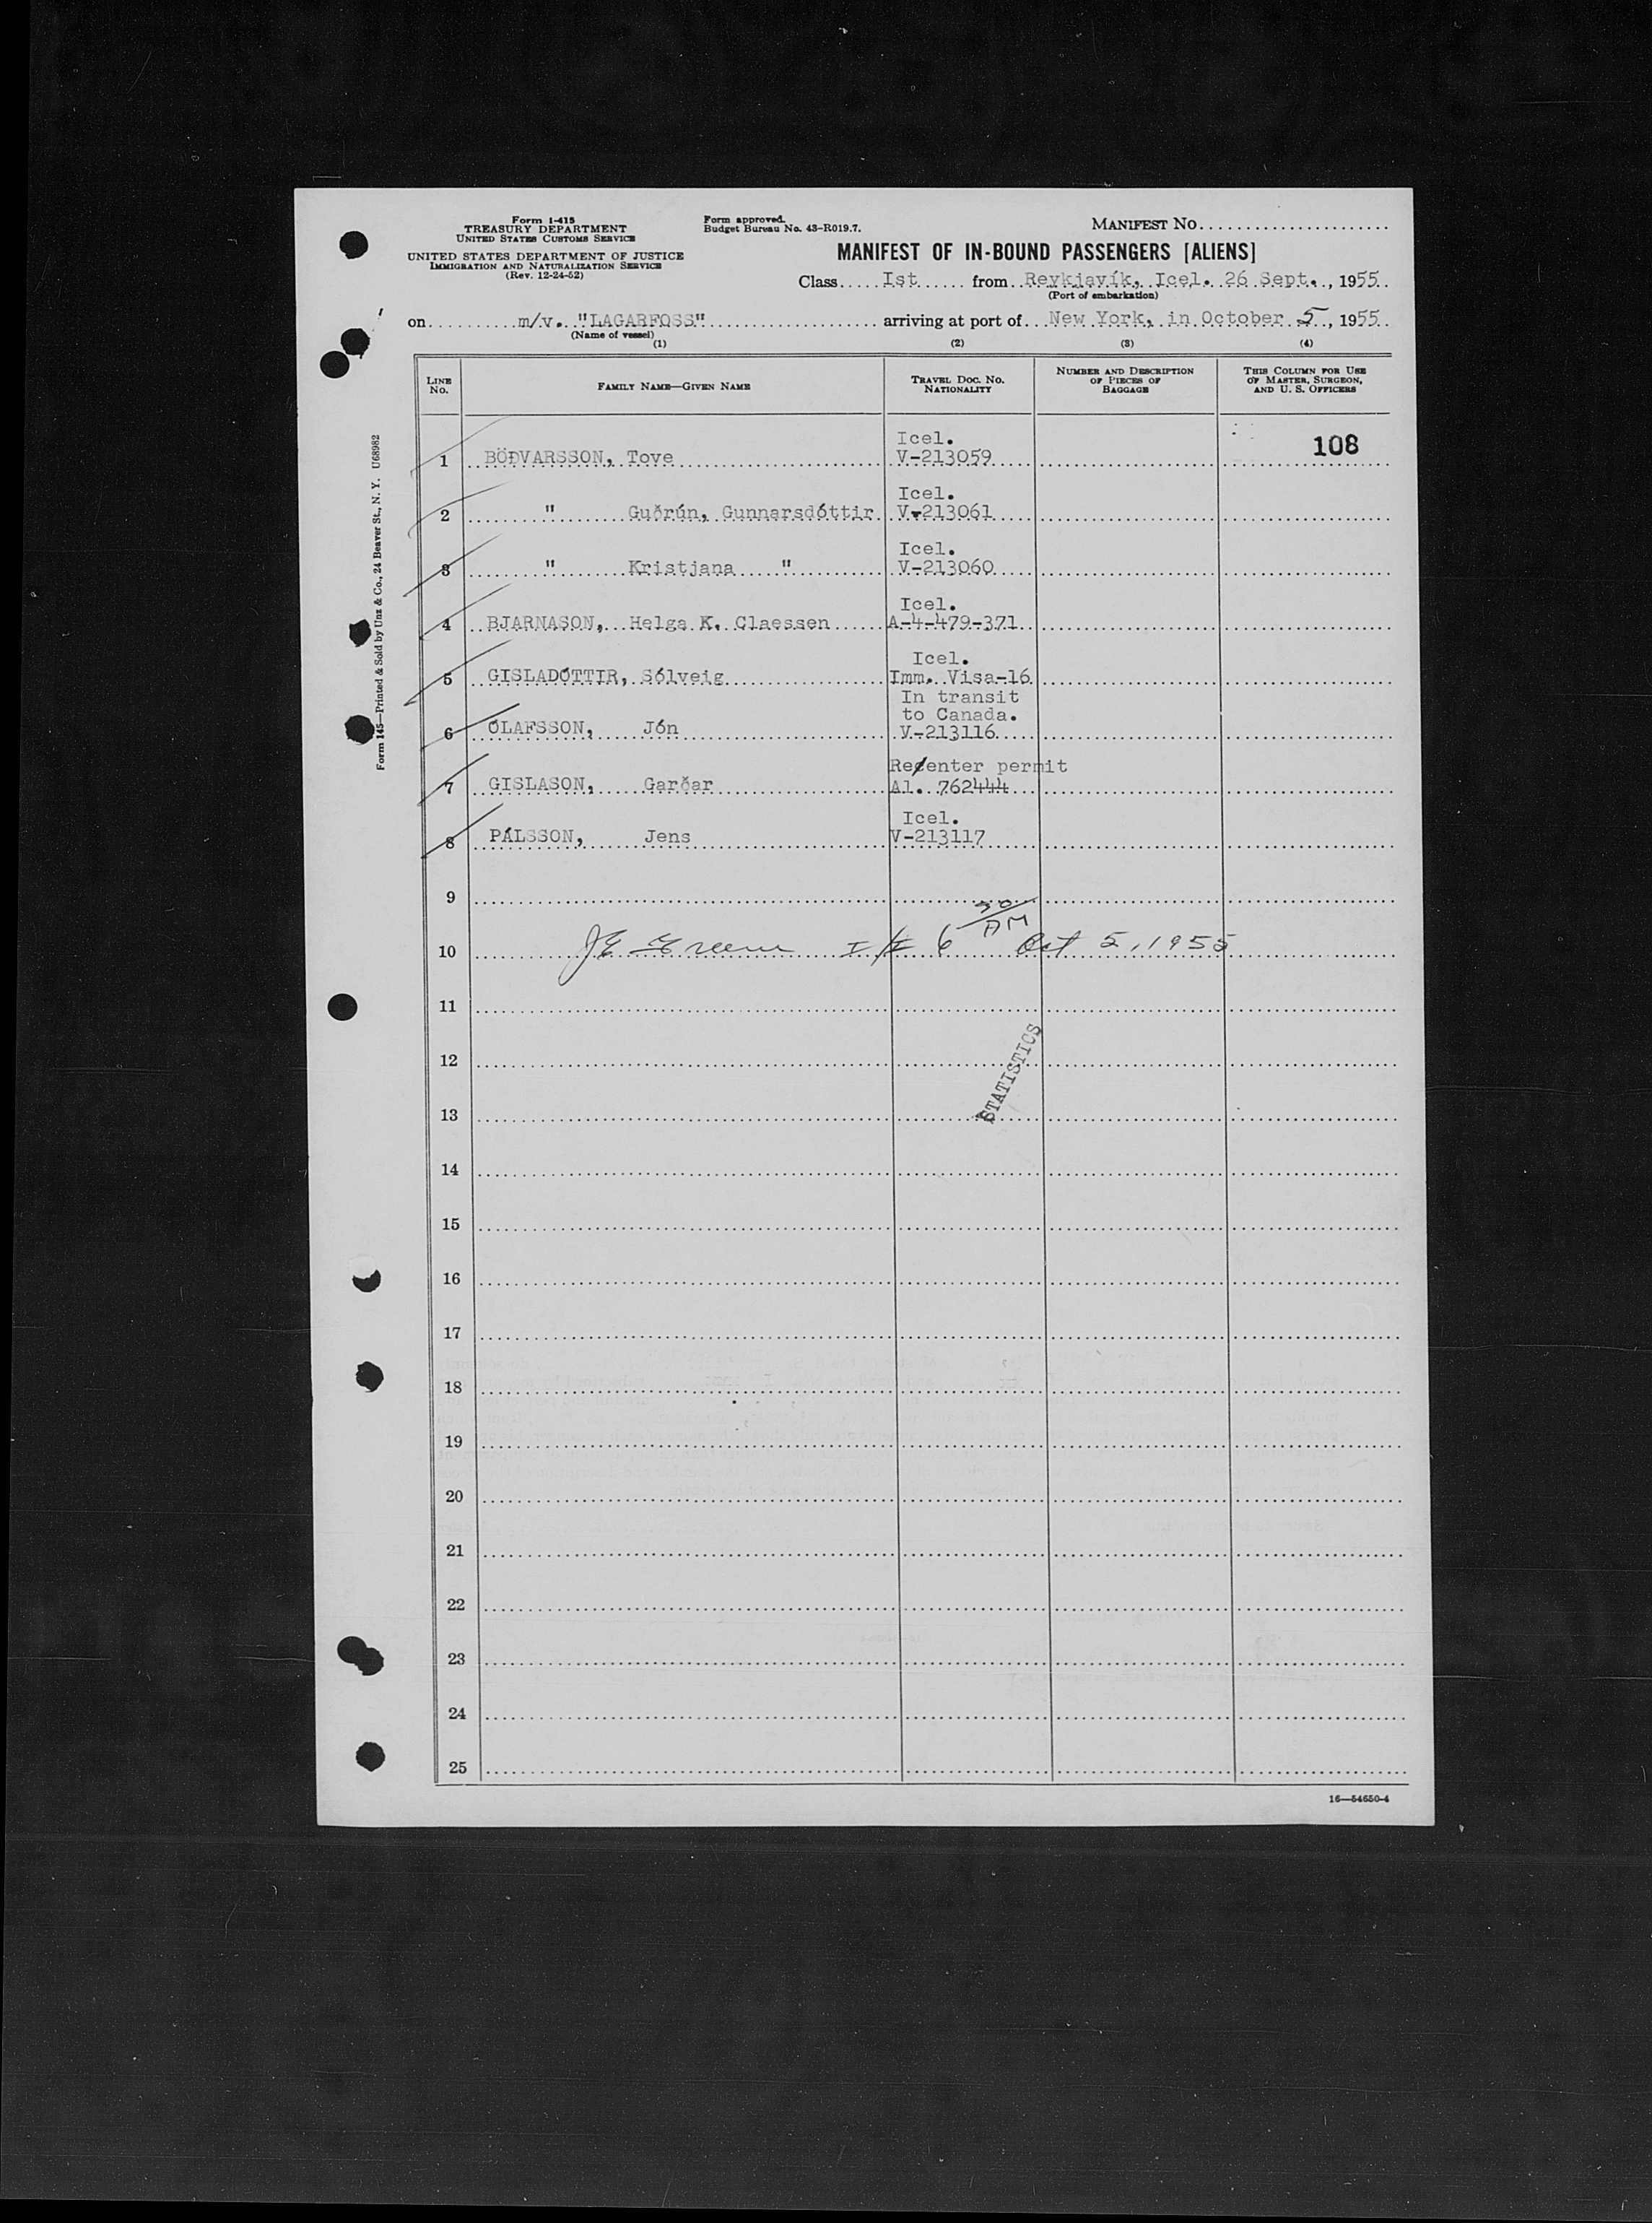 Form I-415
TREASURY DEPARTMENT
UNITED STATES CUSTOMS SERVICE
UNITED STATES DEPARTMENT OF JUSTICE
IMMIGRATION AND NATURALIZATION SERVICE
(Rev. 12-24-52)
Form approved.
Budget Bureau No. 43-R019.7.
MANIFEST NO.
MANIFEST OF IN-BOUND PASSENGERS [ALIENS]
Class Ist from Reykjavík, Icel. 26 Sept., 1955
(Port of embarkation)
on m/v. "LAGARFOSS" arriving at port of New York, in October 5, 1955
(Name of vessel)
(1) (2) (3) (4)
LINE NO. FAMILY NAME—GIVEN NAME TRAVEL DOC. NO. NATIONALITY NUMBER AND DESCRIPTION OF PIECES OF BAGGAGE THIS COLUMN FOR USE OF MASTER, SURGEON, AND U. S. OFFICERS
Icel. 108
1 BÖÐVARSSON, Tove V-213059
Icel.
2 " Guðrún, Gunnarsdóttir V-213061
Icel.
3 " Kristjana " V-213060
Icel.
4 BJARNASON, Helga K. Claessen A-4-479-371
Icel.
5 GISLADÓTTIR, Sólveig Imm. Visa-16
In transit
to Canada.
6 ÓLAFSSON, Jón V-213116
Reenter permit
7 GISLASON, Garðar Al. 762444
Icel.
8 PÁLSSON, Jens V-213117
9
10 JE Greene I/I 6 30/AM Oct 5, 1955
11
12
STATISTICS
13
14
15
16
17
18
19
20
21
22
23
24
25
16—54650-4
Form 145—Printed & Sold by Unz & Co., 24 Beaver St., N. Y. U68982